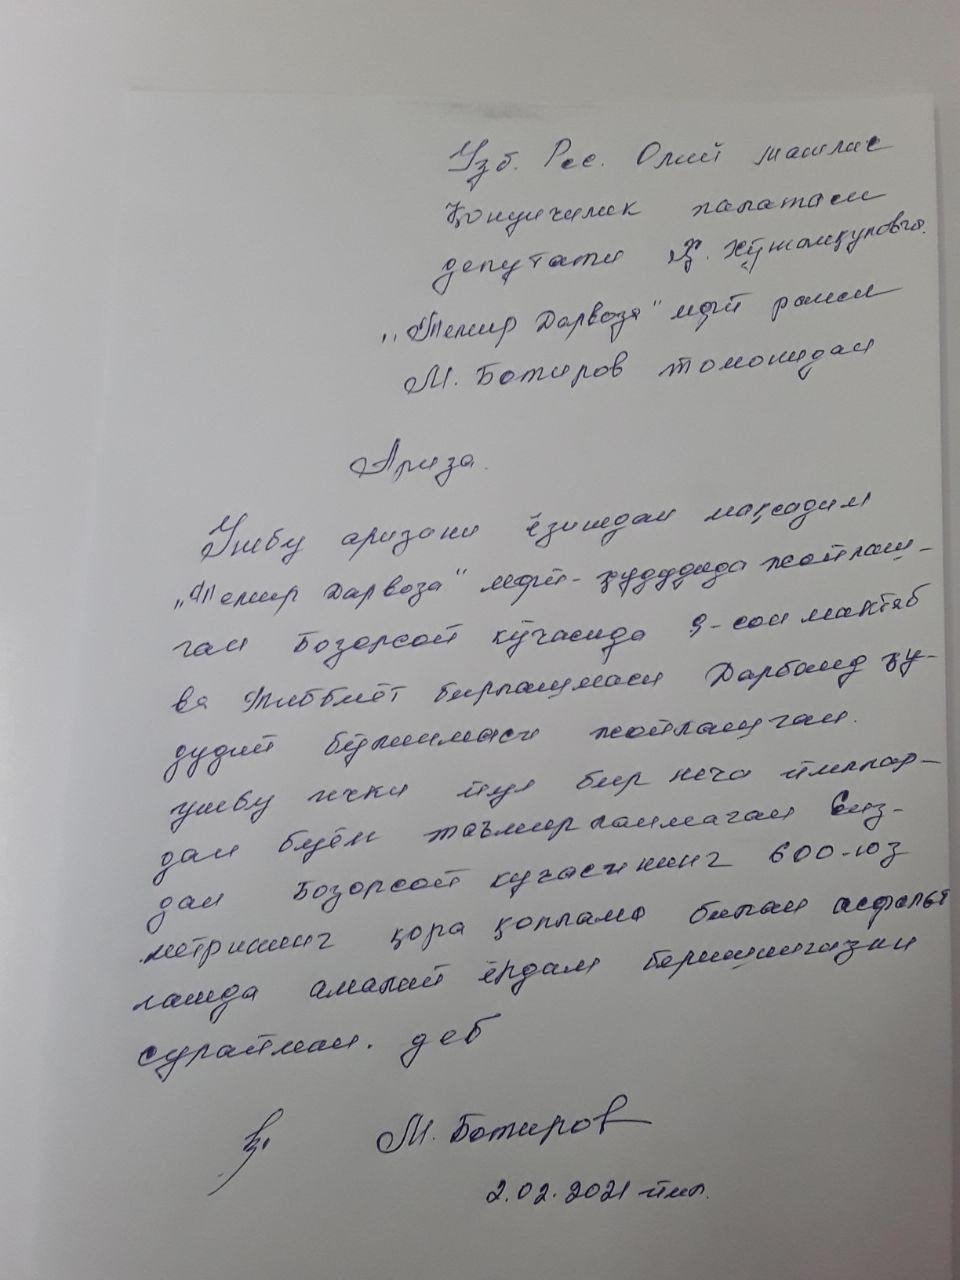 Узб. Рес. Олий мажлис
Қонунчилик палатаси
депутати Қ. Хўжамқуловга.
„Темир Дарвоза" мфй раиси
М. Ботиров томонидан
Ариза.
Ушбу аризани ёзишдан мақсадим
„Темир Дарвоза" мфй-ҳудудида жойлаш-
ган Бозорсой кўчасида 9-сон мактаб
ва Тиббиёт бирлашмаси Дарбанд ҳу-
дудий бўлинмаси жойлашган.
ушбу ички йул бир неча йиллар-
дан буён таъмирланмаган Сиз-
дан Бозорсой кучасининг 600-юз
метрининг қора қоплама билан асфальт
лашда амалий ёрдам беришингизни
сурайман. деб
М. Ботиров
2.02.2021 йил.